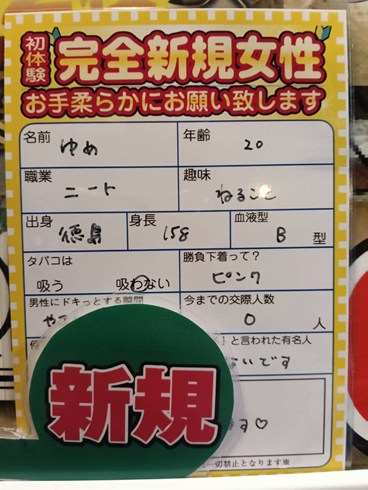 初体験
完全新規女性
お手柔らかにお願い致します
名前 ゆめ 年齢 20
職業 ニート 趣味 ねること
出身 徳島 身長 158 血液型 B 型
タバコは 勝負下着って?
吸う 吸わない ピンク
男性にドキっとする瞬間 今までの交際人数
や 0 人
と言われた有名人
ないです
新規
す♡
切禁止となります※